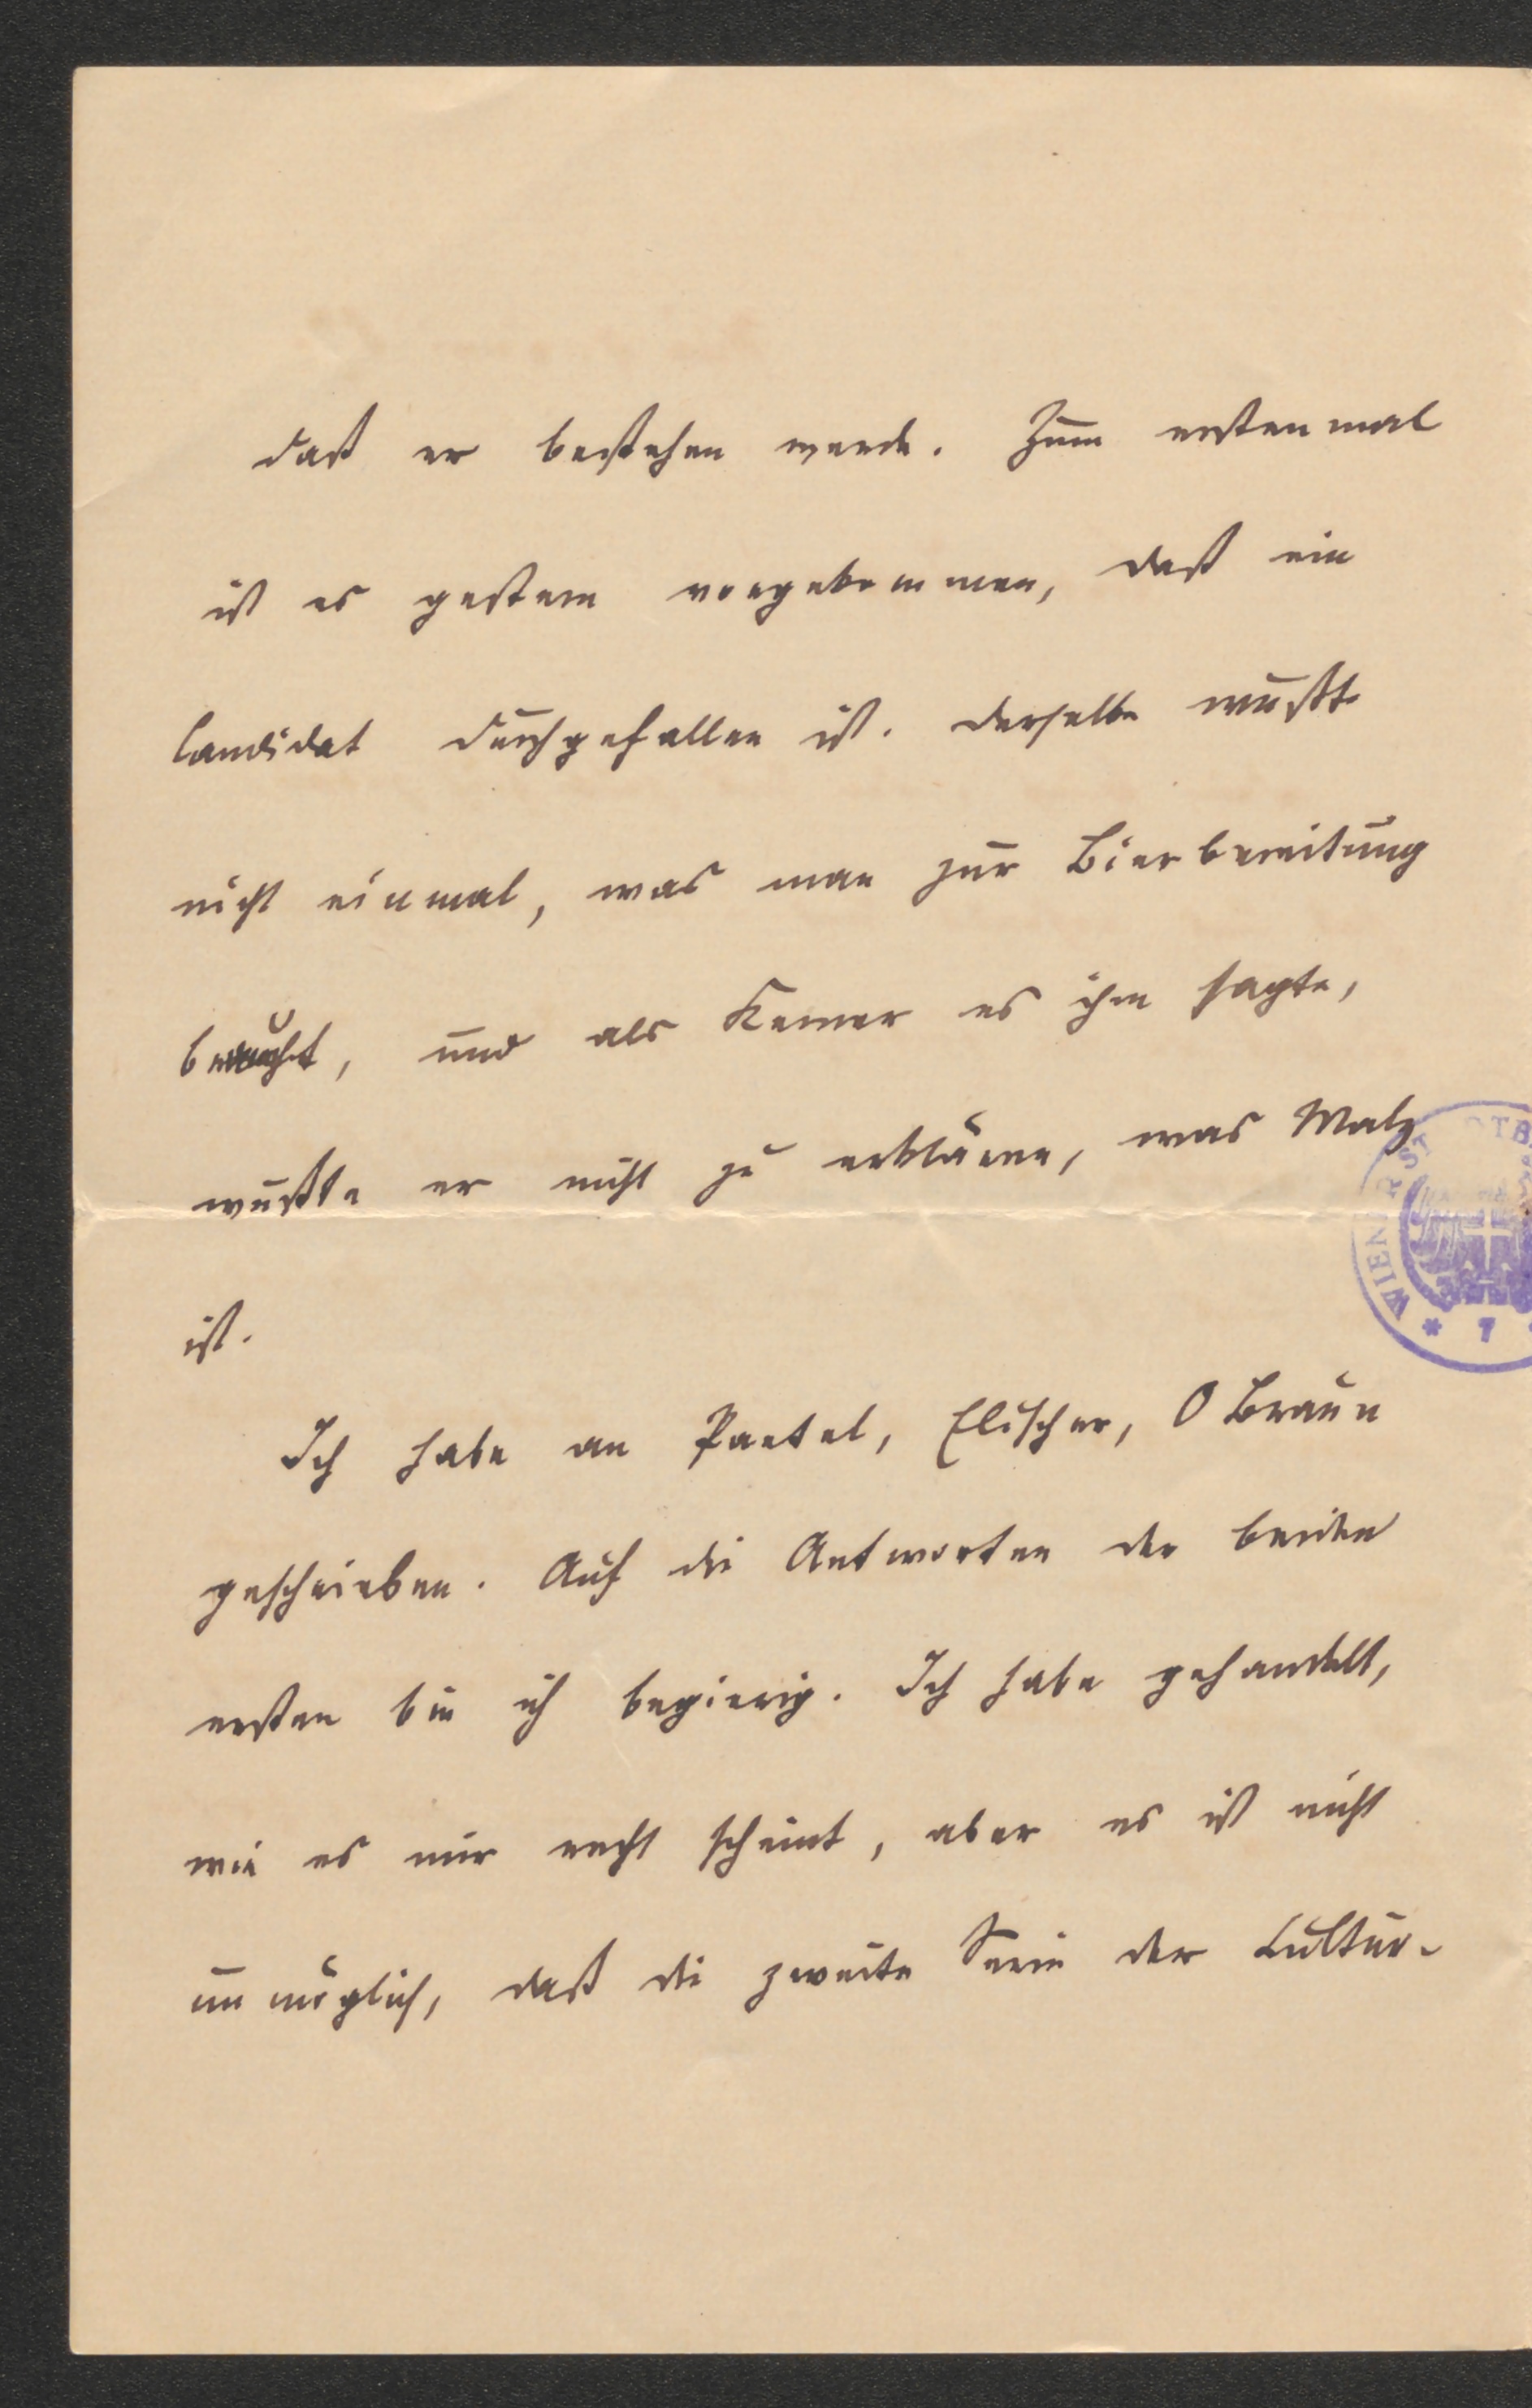 daß er bestehen werde. Zum erstenmal
ist es gestern vorgekommen, daß ein
Candidat durchgefallen ist. Derselbe wußte
nicht einmal, was man zur Bierbereitung
braucht, und als Kerner es ihm sagte,
wußte er nicht zu erklären, was Malz
ist.
Ich habe an Paetel, Elischer, O Braun
geschrieben. Auf die Antworten der beiden
ersten bin ich begierig. Ich habe gehandelt,
wie es mir recht scheint, aber es ist nicht
unmöglich, daß die zweite Serie der Cultur-
WIENER ST
* 7